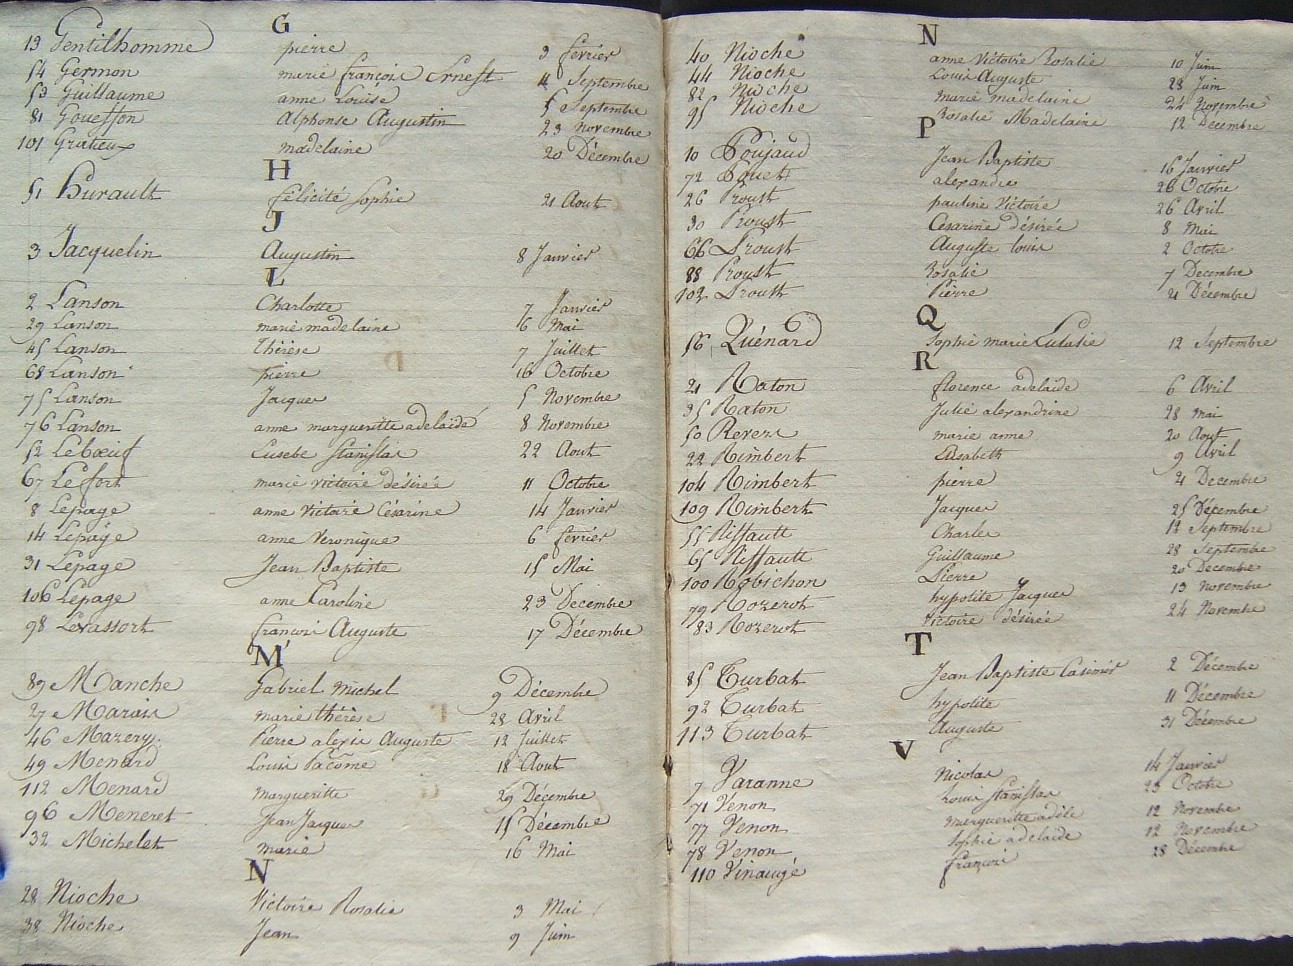 G
19 Gentilhomme pierre 9 fevrier
54 Germon marie françoise Ernest 4 Septembre
53 Guillaume anne Louise 5 Septembre
81 Goueffon Alphonse Augustin 23 novembre
101 Gratieux madelaine 20 Décembre
H
51 hurault félicité Sophie 21 Aout
J
3 Jacquelin Augustin 8 Janvier
L
2 Lanson Charlotte 7 Janvier
29 Lanson marie madelaine 6 Mai
45 Lanson thérèse 7 Juillet
68 Lanson pierre 16 Octobre
75 Lanson Jacques 5 Novembre
76 Lanson anne margueritte adelaide 8 Novembre
52 Lebœuf Eusebe Stanislas 22 Aout
67 Lefort marie victoire désirée 11 Octobre
8 Lepage anne Victoire Césarine 14 Janvier
14 Lepage anne Veronique 6 fevrier
31 Lepage Jean Baptiste 15 Mai
106 Lepage anne Caroline 23 Decembre
98 Levassort françois Auguste 17 Décembre
M
89 Manche Gabriel Michel 9 Décembre
27 Marais marie thérèse 28 Avril
46 Marery Pierre alexis Auguste 12 Juillet
49 Menard Louis Pacôme 18 Aout
112 Menard Margueritte 29 Décembre
96 Meneret Jean Jacques 15 Décembre
32 Michelet marie 16 Mai
N
28 Nioche Victoire Rosalie 3 Mai
38 Nioche Jean 9 Juin
N
40 Nioche anne Victoire Rosalie 10 Juin
44 Nioche Louis Auguste 28 Juin
82 Nioche marie madelaine 24 Novembre
95 Nioche Rosalie Madelaine 12 Decembre
P
10 Poujaud Jean Baptiste 16 Janvier
72 Pouet alexandre 28 Octobre
26 Proust pauline Victoire 26 Avril
30 Proust Césarine désirée 8 Mai
66 Proust Auguste louis 2 Octobre
88 Proust Rosalie 7 Decembre
102 Proust Pierre 21 Décembre
Q
56 Quénard Sophie marie Eulalie 12 Septembre
R
21 Raton florence adelaide 6 Avril
35 Raton Julie alexandrine 28 Mai
50 Revers marie anne 20 Aout
22 Rimbert Elisabeth 9 Avril
104 Rimbert pierre 21 Decembre
109 Rimbert Jacques 25 Décembre
55 Riffault Charles 12 Septembre
65 Riffault Guillaume 28 Septembre
100 Robichon Pierre 20 Decembre
79 Rozerot hypolite Jacques 13 Novembre
83 Rozerot Victoire désirée 24 Novembre
T
85 Turbat Jean Baptiste Casimir 2 Décembre
92 Turbat hypolite 11 Décembre
113 Turbat Auguste 31 Décembre
V
7 Varanne Nicolas 14 Janvier
71 Venon Louis Stanislas 23 Octobre
77 Venon Margueritte adèle 12 Novembre
78 Venon Sophie adelaide 12 Novembre
110 Vinaugé françois 28 Décembre